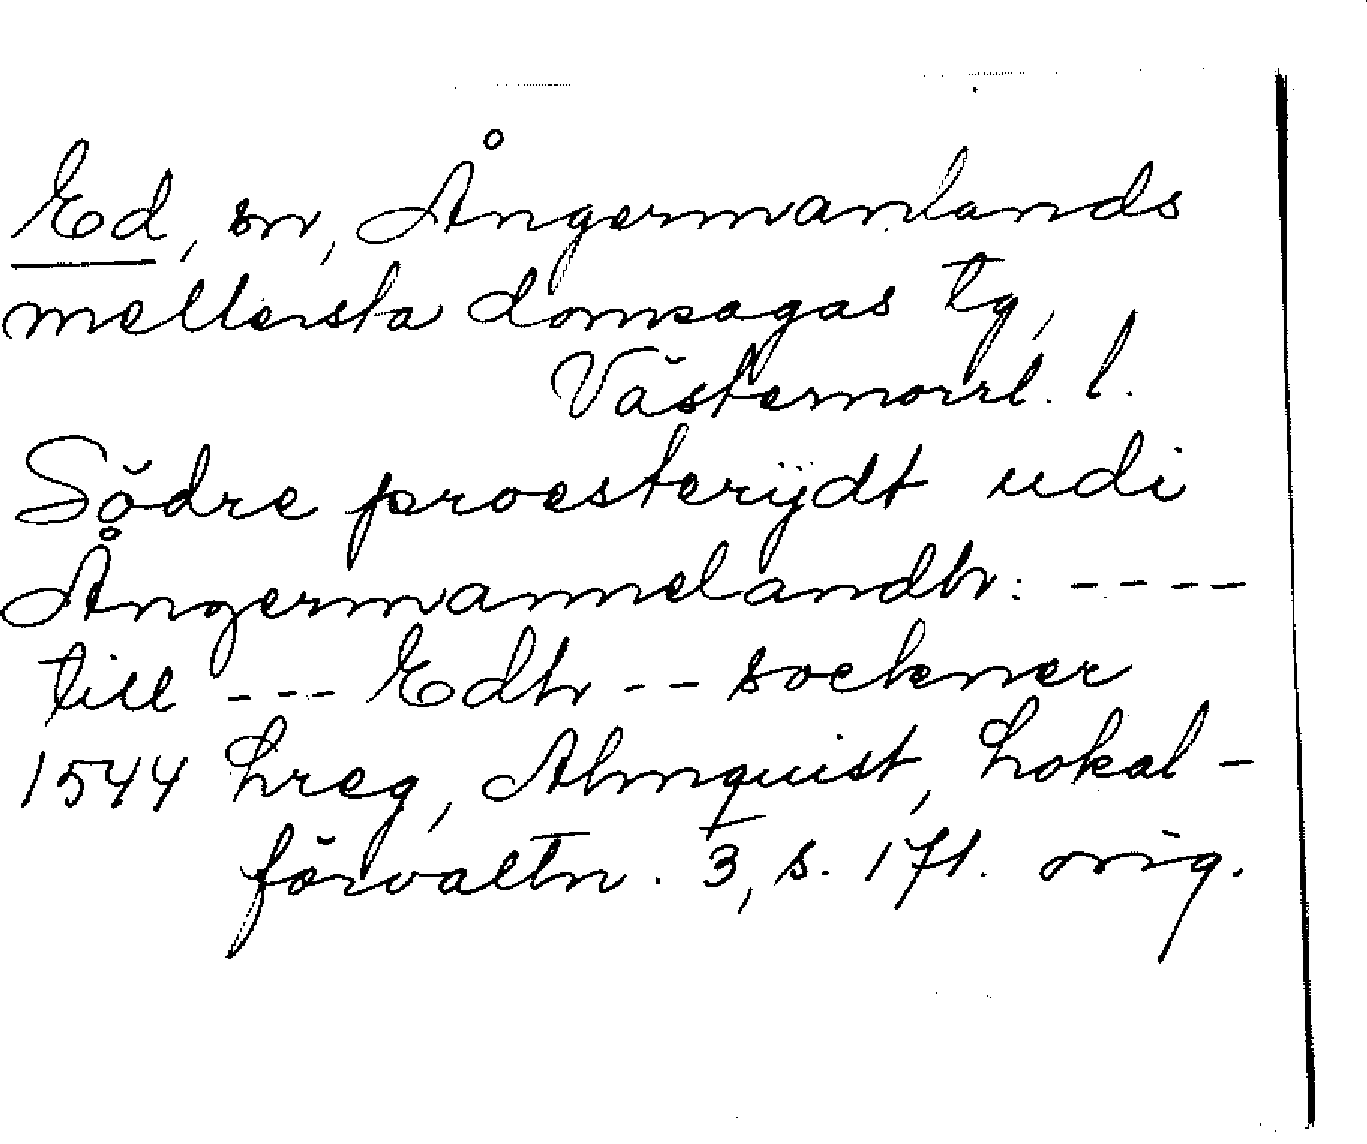 Ed, sn, Ångermanlands
mellersta domsagas tg,
Västernorrl. l.
Södre proesterijdt udi
Ångermannelandh: ----
till --- Edh -- sockner
1544 Lreg, Almquist, Lokal-
förvaltn. 3, s. 171. orig.